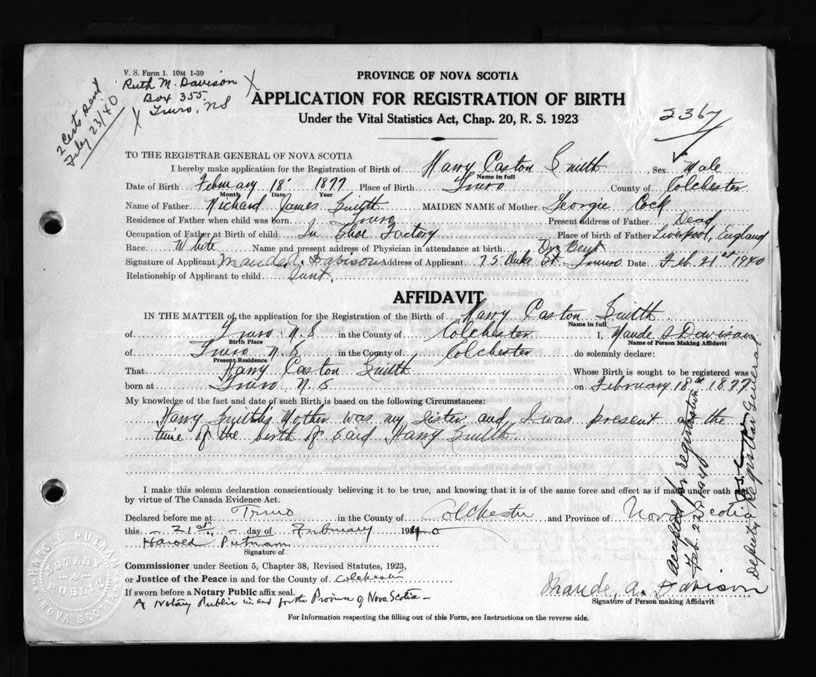 V. S. Form 1. 10M 1-39
Ruth M. Davison
Box 355
Truro, NS
2 Certs sent
Feby 23/40
PROVINCE OF NOVA SCOTIA
APPLICATION FOR REGISTRATION OF BIRTH
Under the Vital Statistics Act, Chap. 20, R. S. 1923
2367
TO THE REGISTRAR GENERAL OF NOVA SCOTIA
I hereby make application for the Registration of Birth of Harry Caston Smith, Sex Male
Name in full
Date of Birth February 18 1877 Place of Birth Truro County of Colchester
Month Date Year
Name of Father Richard James Smith MAIDEN NAME of Mother Georgie Cock
Residence of Father when child was born Truro Present address of Father Dead
Occupation of Father at Birth of child In Shoe Factory Place of birth of Father Liverpool, England
Race White Name and present address of Physician in attendance at birth Dr Bent
Signature of Applicant Maude A. Davison Address of Applicant 75 Duke St. Truro Date Feb. 21st 1940
Relationship of Applicant to child Aunt.
AFFIDAVIT
IN THE MATTER of the application for the Registration of Birth of Harry Caston Smith
Name in full
of Truro N.S in the County of Colchester I, Maude A Davison
Birth Place Name of Person Making Affidavit
of Truro N.S in the County of Colchester do solemnly declare:
Present Residence
That Harry Caston Smith Whose Birth is sought to be registered was
born at Truro N.S on February 18th 1877
My knowledge of the fact and date of such Birth is based on the following Circumstances:
Harry Smith's Mother was my sister and I was present at the
time of the birth of said Harry Smith
I make this solemn declaration conscientiously believing it to be true, and knowing that it is of the same force and effect as if made under oath
by virtue of The Canada Evidence Act.
Declared before me at Truro in the County of Colchester and Province of Nova Scotia
this 21st day of February 1940
Harold Putnam
Signature of
Commissioner under Section 5, Chapter 38, Revised Statutes, 1923,
or Justice of the Peace in and for the County of Colchester
If sworn before a Notary Public affix seal.
A Notary Public in and for the Province of Nova Scotia
Maude A. Davison
Signature of Person making Affidavit
For Information respecting the filling out of this Form, see Instructions on the reverse side.
Accepted for registration
Feb. 23 1940
Deputy Registrar General
HAROLD PUTNAM
NOTARY PUBLIC
NOVA SCOTIA